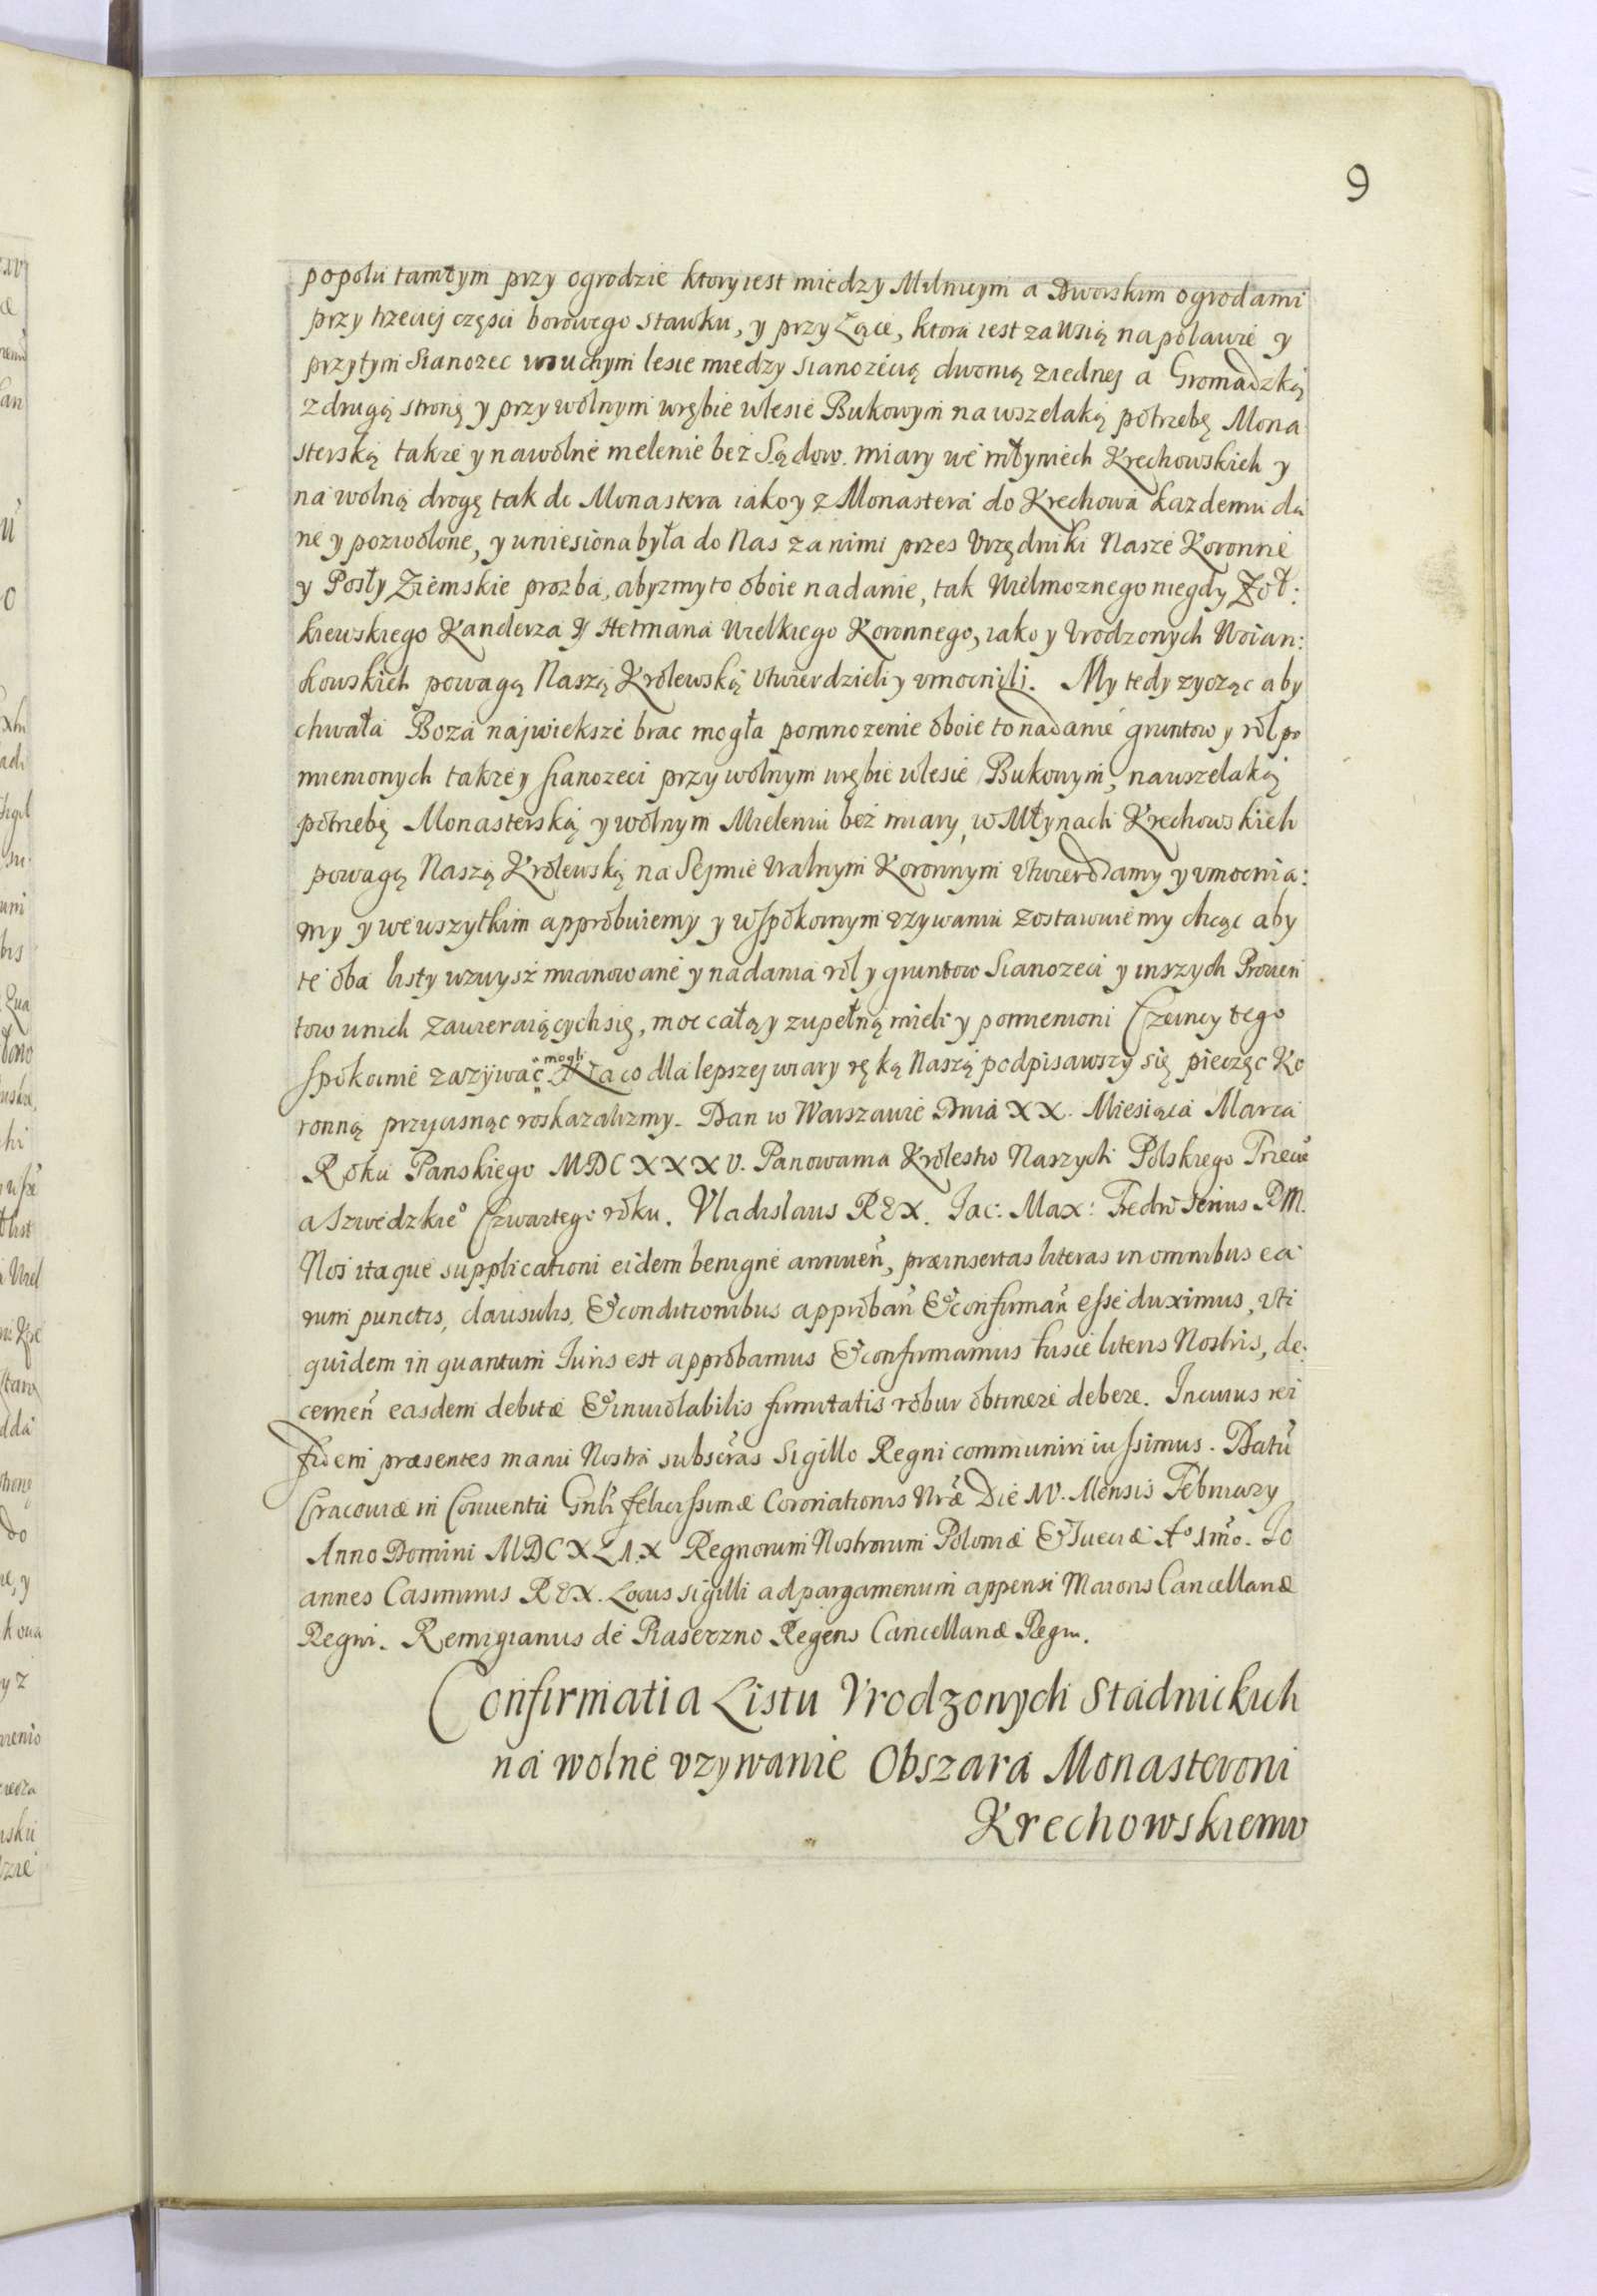 9
popolu tamtym przy ogrodzie ktory iest miedzy Milnuym a Dworskim ogrodami
przy trzeciej części borowego stawku, y przy Łące, ktora iest za Wsią na polawie y
przytym Sianozec w suchym lesie miedzy sianozecią dworną z iednej a Gromadzką
z drugą stronę y przy wolnym wrębie w lesie Bukowym na wszelaką potrzebę Mona
sterską takze y na wolne melenie bez Sądow. miary we młyniech Krechowskich y
na wolną drogę tak do Monastera iako y z Monastera do Krechowa kazdemu da
ne y pozwolone, y wniesiona była do Nas za nimi przes Vrzędniki Nasze Koronne
y Posły Ziemskie prozba, abyzmy to oboie nadanie, tak Wielmoznego niegdy Zoł:
kiewskiego Kanclerza y Hetmana Wielkiego Koronnego, iako y Vrodzonych Woian:
kowskich powagą Naszą Krolewską vtwierdzieli y vmocnili. My tedy zycząc aby
chwała Boza najwieksze brac mogła pomnozenie oboie to nadanie gruntow y rol po
mienionych takze y sianozeci przy wolnym wrębie w lesie Bukowym, na wszelaką
potrzebę Monasterską y wolnym Mieleniu bez miary, w Młynach Krechowskich
powagą Naszą Krolewską na Sejmie Walnym Koronnym vtwierdzamy y vmocnia:
my y we wszytkim approbuiemy y w spokoinym vzywaniu zostawuiemy chcąc aby
te oba listy wzwysz mianowane y nadania rol y gruntow Sianozeci y inszych Prowen
tow w nich zawieraiących się, moc całą y zupełną mieli y pomienioni Czerncy tego
spokoinie zazywać mogli Na co dla lepszej wiary ręką Naszą podpisawszy się pieczęc Ko
ronną przycisnąc roskazalizmy. Dan w Warszawie Dnia XX. Miesiąca Marca
Roku Panskiego MDCXXXV. Panowania Krolestw Naszych Polskiego Trzecie
a Szwedzkie⁰ Czwartego roku. Vladislaus REX. Jac: Max: Fredro Ser̃ius RM.
Nos itaque supplicationi eidem benigne annueñ, præinsertas literas in omnibus ea
rum punctis, clausulis, & conditionibus approbañ & confirmañ esse duximus, vti
quidem in quantum Juris est approbamus & confirmamus hisce literis Nostris, de:
cerneñ easdem debitæ & inviolabilis firmitatis robur obtinere debere. In cuius rei
fidem præsentes manu Nostra subscr̃as Sigillo Regni communiri iussimus. Datũ
Cracouiæ in Conventu Gnli felicissimæ Coronationis Nr̃æ Die XV. Mensis Februarij
Anno Domini MDCXLIX Regnorum Nostrorum Poloniæ & Sueciæ A⁰ 1mo. Jo
annes Casimirus REX. Locus sigilli ad pargamenum appensi Maioris Cancellariæ
Regni. Remigianus de Piaseczno Regens Cancellariæ Regni.
Confirmatia Listu Vrodzonych Stadnickich
na wolne vzywanie Obszara Monasterowi
Krechowskiemv